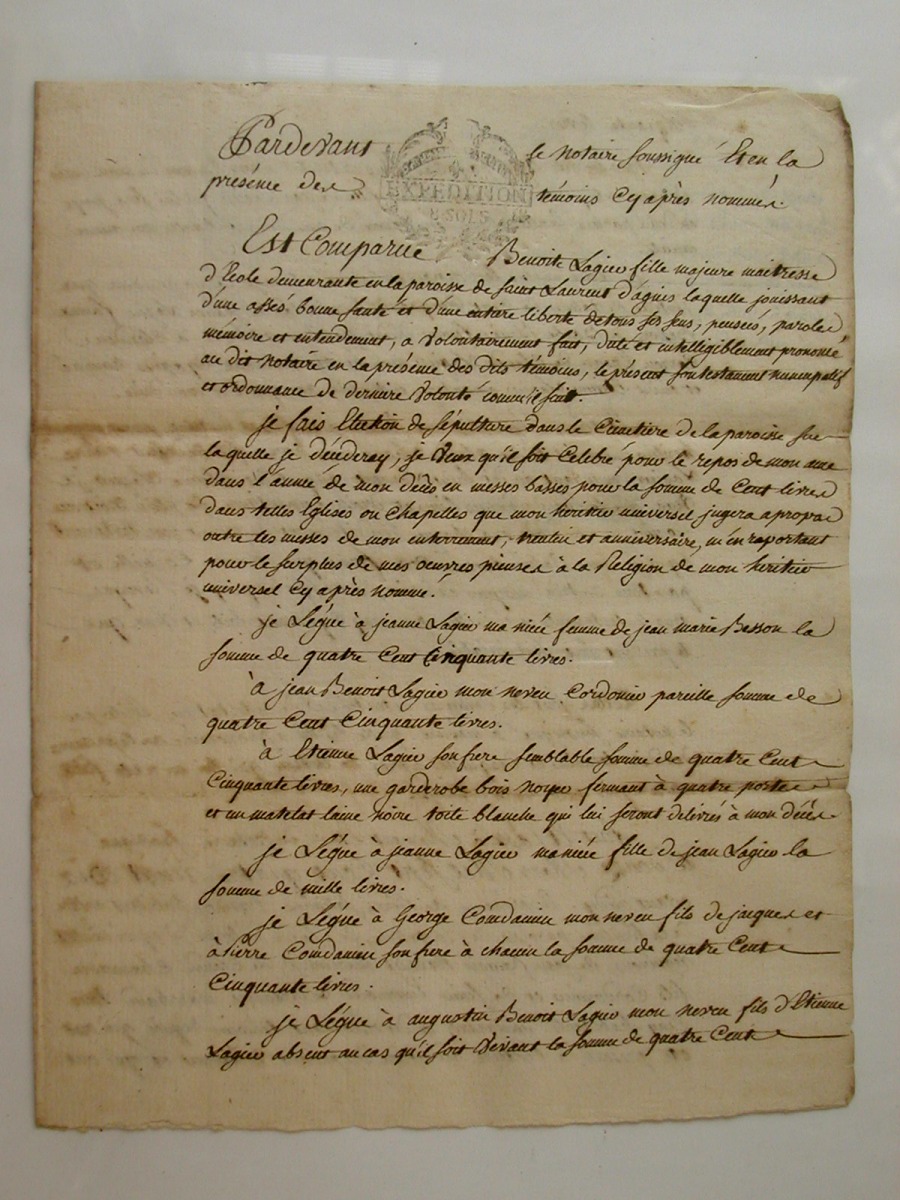 Pardevant le Notaire soussigné Et en la
présence des témoins Cy après nommés.
EXPEDITION
SOLS
Est Comparue Benoite Lagier fille majeure maitresse
d'Ecole demeurante en la paroisse de saint Laurent d'agnis laquelle jouissant
d'une assés bonne santé et d'une entière liberté de tous ses sens, pensées, parole
mémoire et entendement, a volontairement fait, dicté et intelligiblement prononcé
au dit Notaire en la présence des dits témoins, le présent son testament nuncupatif
et ordonnance de dernière volonté comme s'ensuit.
je fais Election de sépulture dans le Cimetière de la paroisse sur
laquelle je décèderay, je veux qu'il soit Celebré pour le repos de mon ame
dans l'année de mon décès en messes basses pour la somme de Cent livres
dans telles Eglises ou Chapelles que mon héritier universel jugera apropos
outre les messes de mon enterrement, trentin et anniversaire, m'en raportant
pour le surplus de mes oeuvres pieuses à la Religion de mon héritier
universel Cy après nommé.
je Légue à jeanne Lagier ma niéce femme de jean marie Basson la
somme de quatre Cent Cinquante livres.
à jean Benoit Lagier mon neveu Cordonier pareille somme de
quatre Cent Cinquante livres.
à Etienne Lagier son frere semblable somme de quatre Cent
Cinquante livres, une garderobe bois noyer fermant à quatre portes
et un matelat laine noire toile blanche qui lui seront délivrés à mon décès.
je Légue à jeanne Lagier ma niéce fille de jean Lagier la
somme de mille livres.
je Légue à George Condamin mon neveu fils de jacques et
à Pierre Condamin son frere à chacun la somme de quatre Cent
Cinquante livres.
je Légue à augustin Benoit Lagier mon neveu fils d'Etienne
Lagier absent au cas qu'il soit vivant la somme de quatre Cent